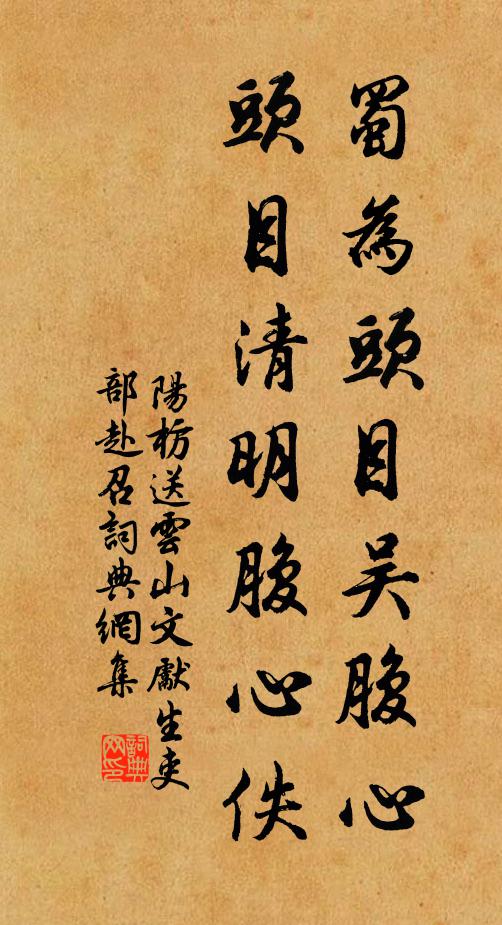 蜀為頭目吴腹心
頭目清明腹心佚
陽枋送雲山文獻生吏
部赴召詞典網集
詞典
网印